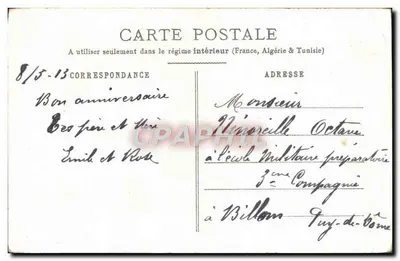 CARTE POSTALE
A utiliser seulement dans le régime intérieur (France, Algérie & Tunisie)
8/5-13 CORRESPONDANCE
Bon anniversaire
Tes père et
Emile et Rose
ADRESSE
Monsieur
Octave
à l'école Militaire préparatoire
3ème Compagnie
à Billom Puy-de-Dôme
CPAPHIL